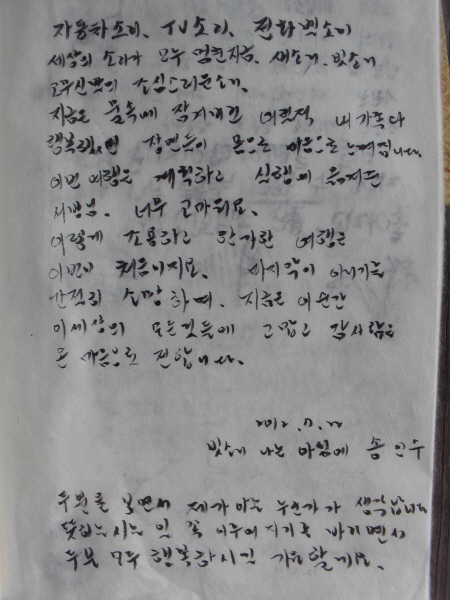 자동차소리, TV소리, 전화벨소리
세상의 소리가 모두 멈춘지금, 새소리, 빗소리
고무신짝의 조심스러운소리.
지금은 물속에 잠겨버린 어릴적 내 가족과
행복했던 장면들이 몸으로 마음으로 느껴집니다.
이번 여행은 계획하고 실행에 옮겨준
서방님. 너무 고마워요.
이렇게 조용하고 단가한 여행은
이번이 처음이지요. 마지막이 아니기를
간절히 소망하며, 지금은 이순간
이세상의 모든것들에 고맙고 감사함을
온 마음으로 전합니다.
2012. 7. 22
빗소리 나는 아침에 송인수
두분을 보면서 제가 아는 누군가가 생각납니다
뜻하시는 일 꼭 이루어지기를 바라면서
두분 모두 행복하시길 기도할게요.